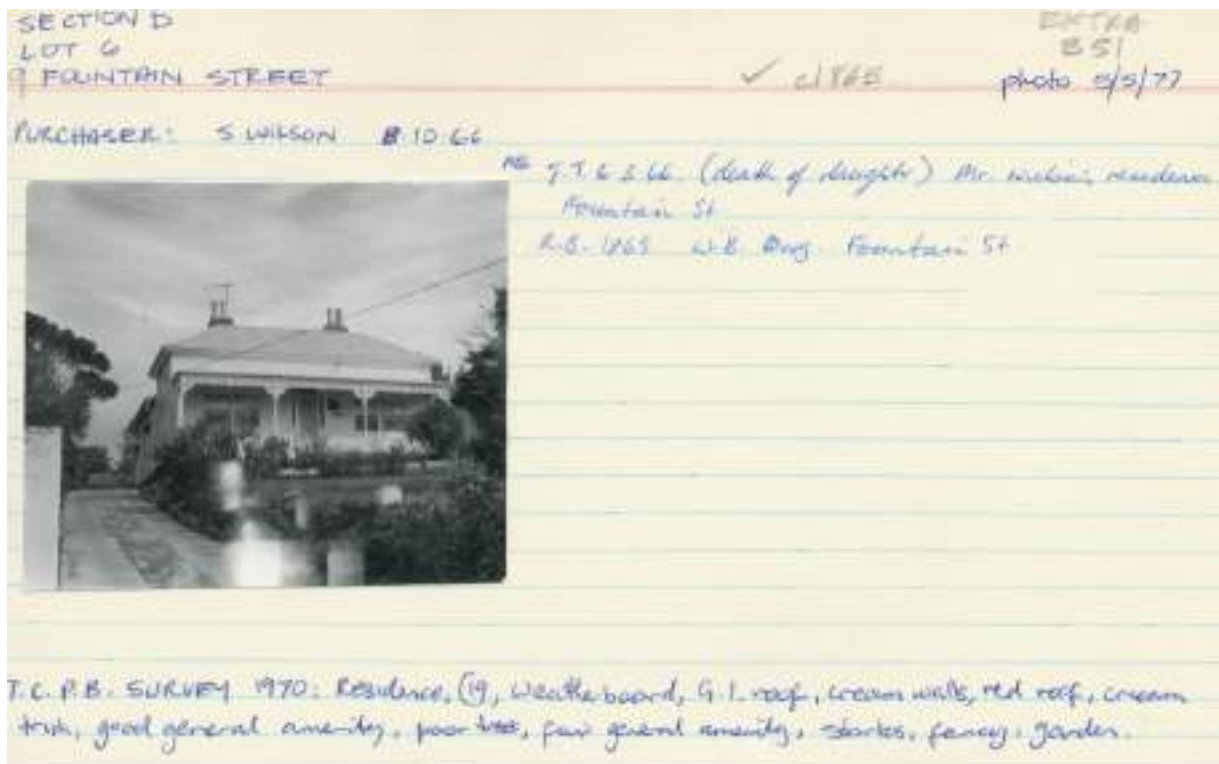 SECTION D
LOT 6
9 FOUNTAIN STREET
EXTRA
B51
✓ c1865
photo 5/5/77
PURCHASER: S WILSON 10.66
(death of daughter) Mr residence
Fountain St
Fountain St
T.C.P.B. SURVEY 1970: Residence, C19, Weatherboard, G.I. roof, cream walls, red roof, cream
trim, good general amenity, poor trees, fair general amenity, fences, garden.